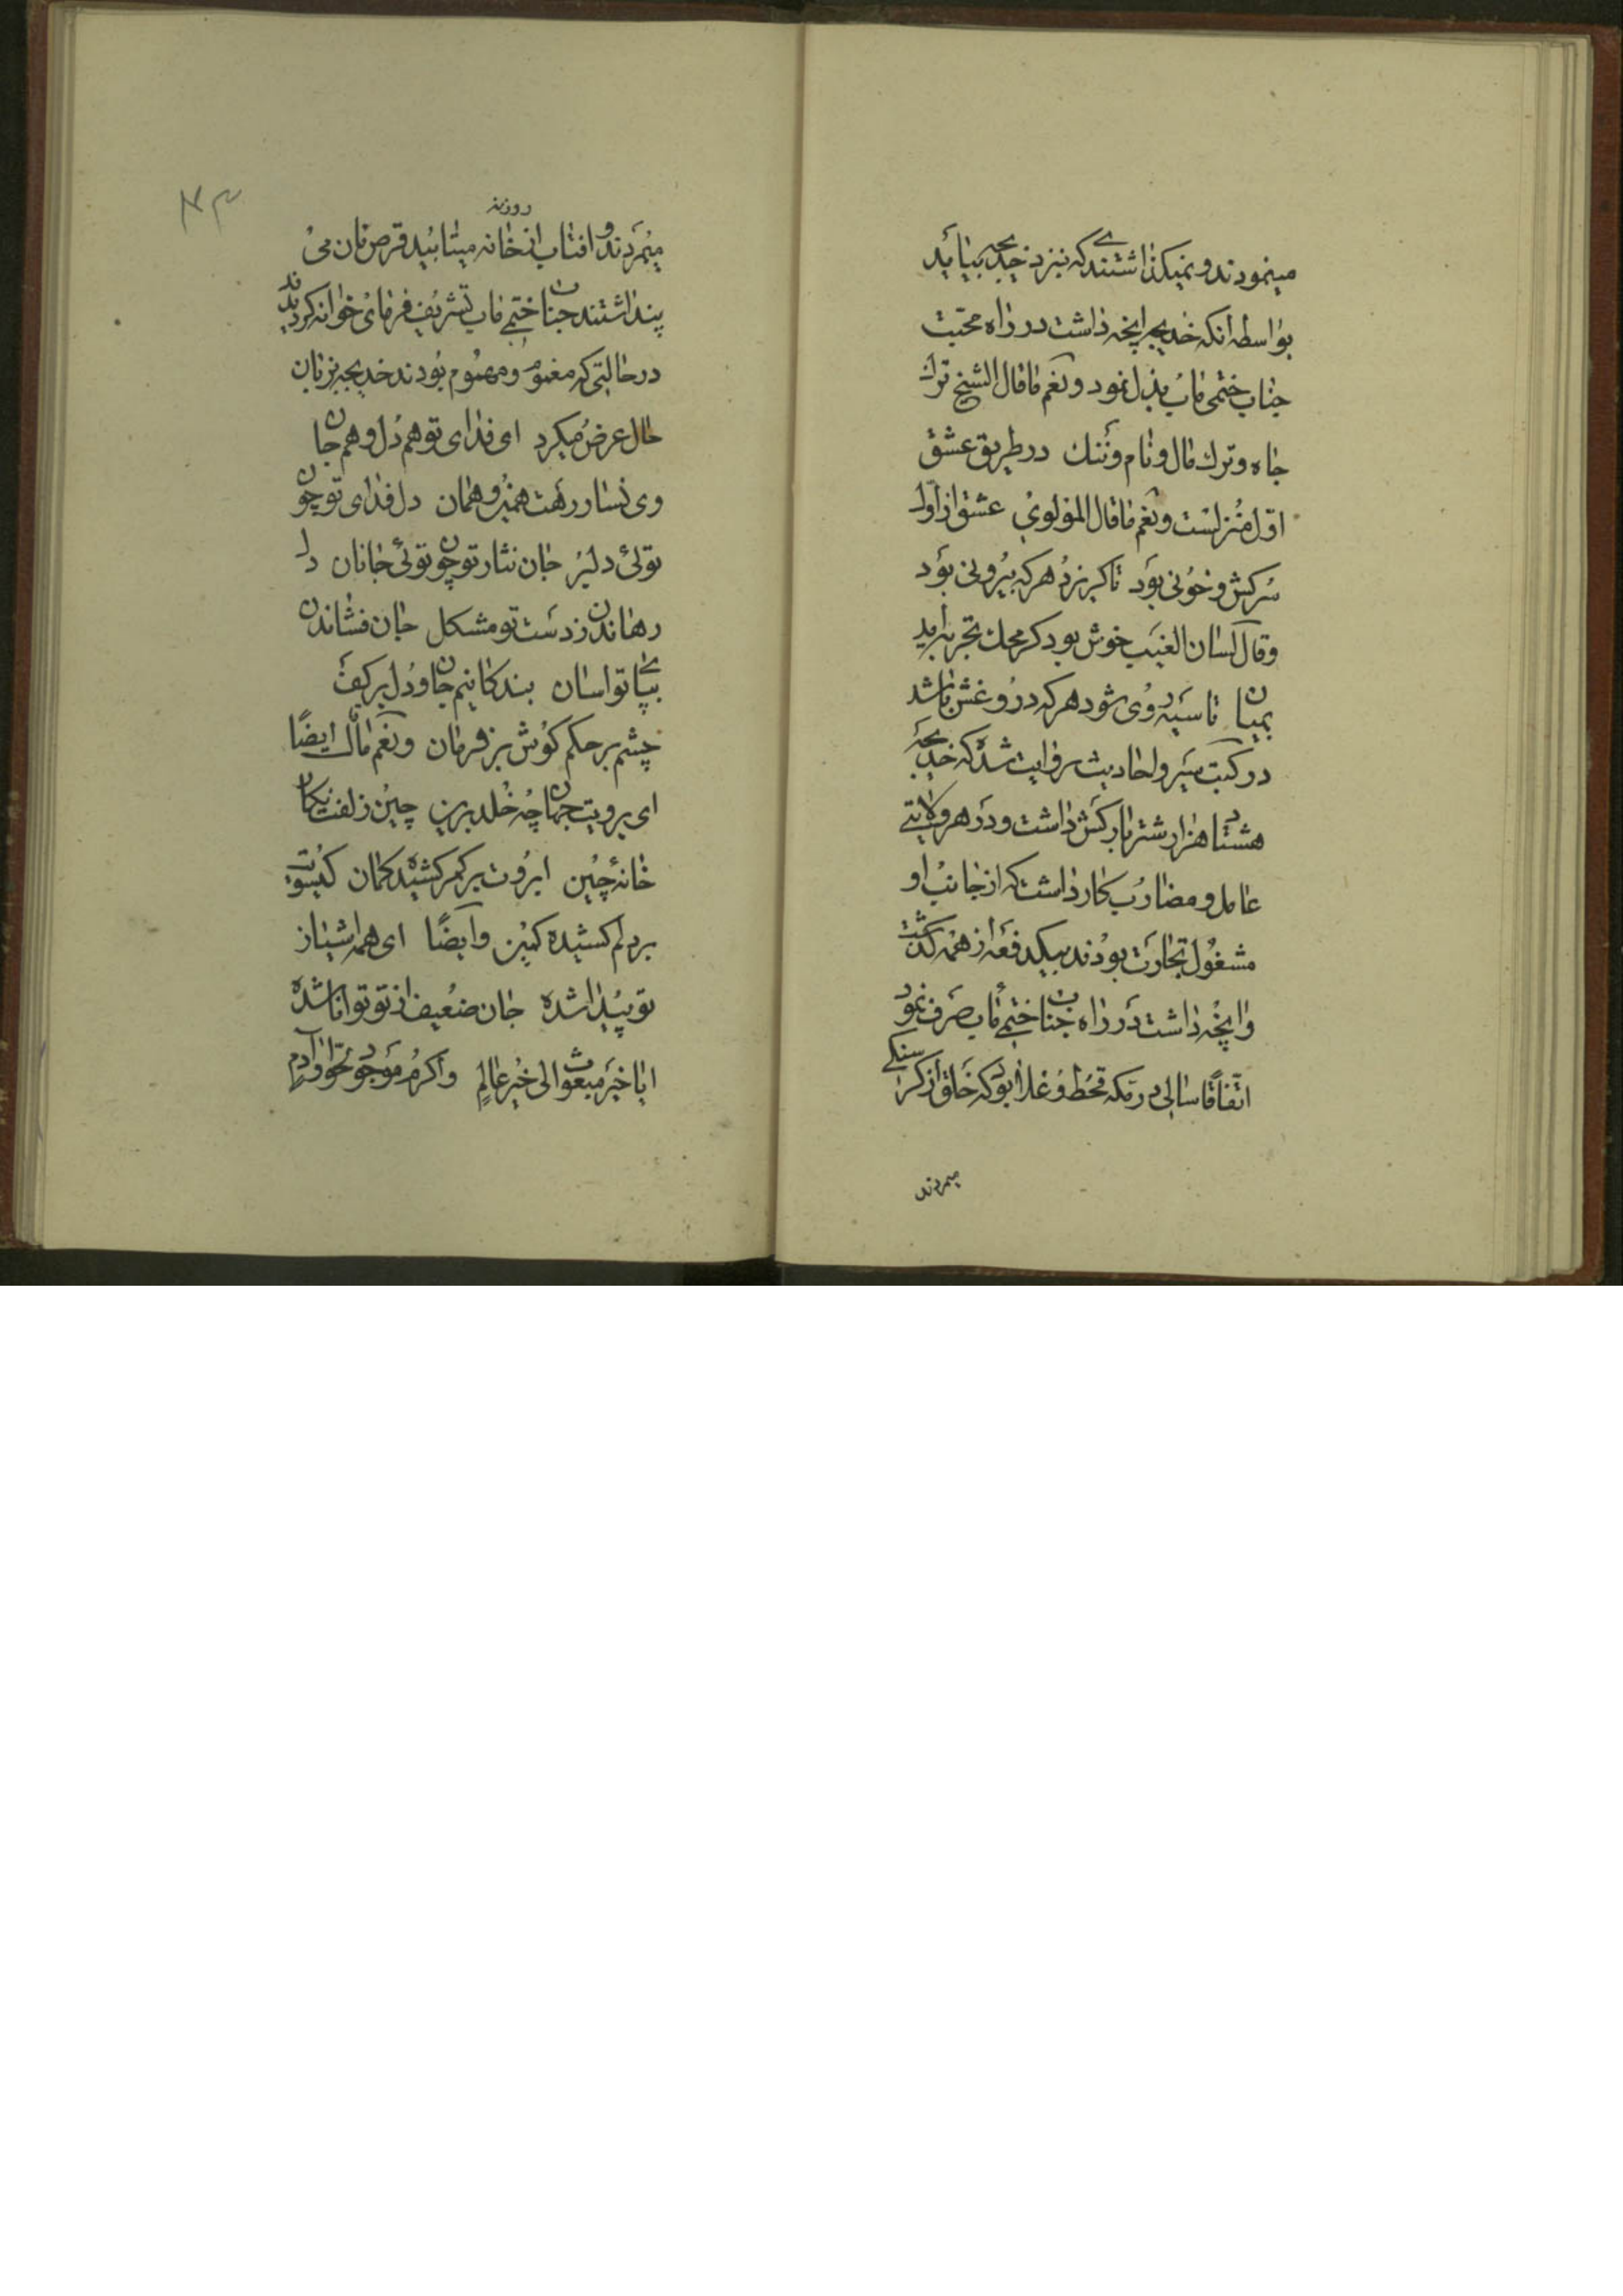 مینمودند و نمیگذاشتند که نیزد خدیجه بیاید
بواسطه انکه خدیجه انچه داشت در راه محبت
جناب ختمی ماب بذل نمود و نعم ما قال الشیخ ترك
جاه و ترك مال و نام و ننك در طریق عشق
اوّل منزلست و نعم ما قال المولوی عشق از اوّل
سرکش و خونی بود تا گریزد هرکه بیرونی بود
و قال لسان الغیب خوش بود گر محك تجربه اید
بمیان تا سیه روی شود هرکه درو غش باشد
در کتب سیر و احادیث روایت شده که خدیجه
هشتاد هزار شتر بارکش داشت و در هر ولایتے
عامل و مضارب بکار داشت که از جانب او
مشغول تجارت بودند بیکدفعه از همه گذشت
و انچه داشت در راه جناب ختمے ماب صرف نمود
اتفاقا سالی در مکه قحط و غلا بود که خلق از گرسنگے
میمردند
۴۳
روزنه
میمردند و افتاب از خانه میتابید قرص نان می
پنداشتند جناب ختمے ماب تشریف فرمای خوانه گردیدند
در حالتی که مغموم و مهموم بودند خدیجه بزبان
حال عرض میکرد ای فدای تو هم دل و هم جان
وی نسار رهت همین و همان دل فدای تو چون
توئی دلبر جان نثار تو چون توئی جانان دل
رهاندن ز دست تو مشکل جان فشاندن
بپای تو اسان بندگانیم جان و دل بر کف
چشم بر حکم گوش بر فرمان و نعم ما قال ایضًا
ای برویت جهان چه خلد برین چین زلفت نکان
خانهٔ چین ابروت بر کمر کشیده کمان گیسوت
بر دلم کشیده کمین و ایضًا ای همه اشیا از
تو پیدا شده جان ضعیف از تو توانا شده
ایا خیر مبعوث الی خیر عالم و اکرم موجود حوا و آدم